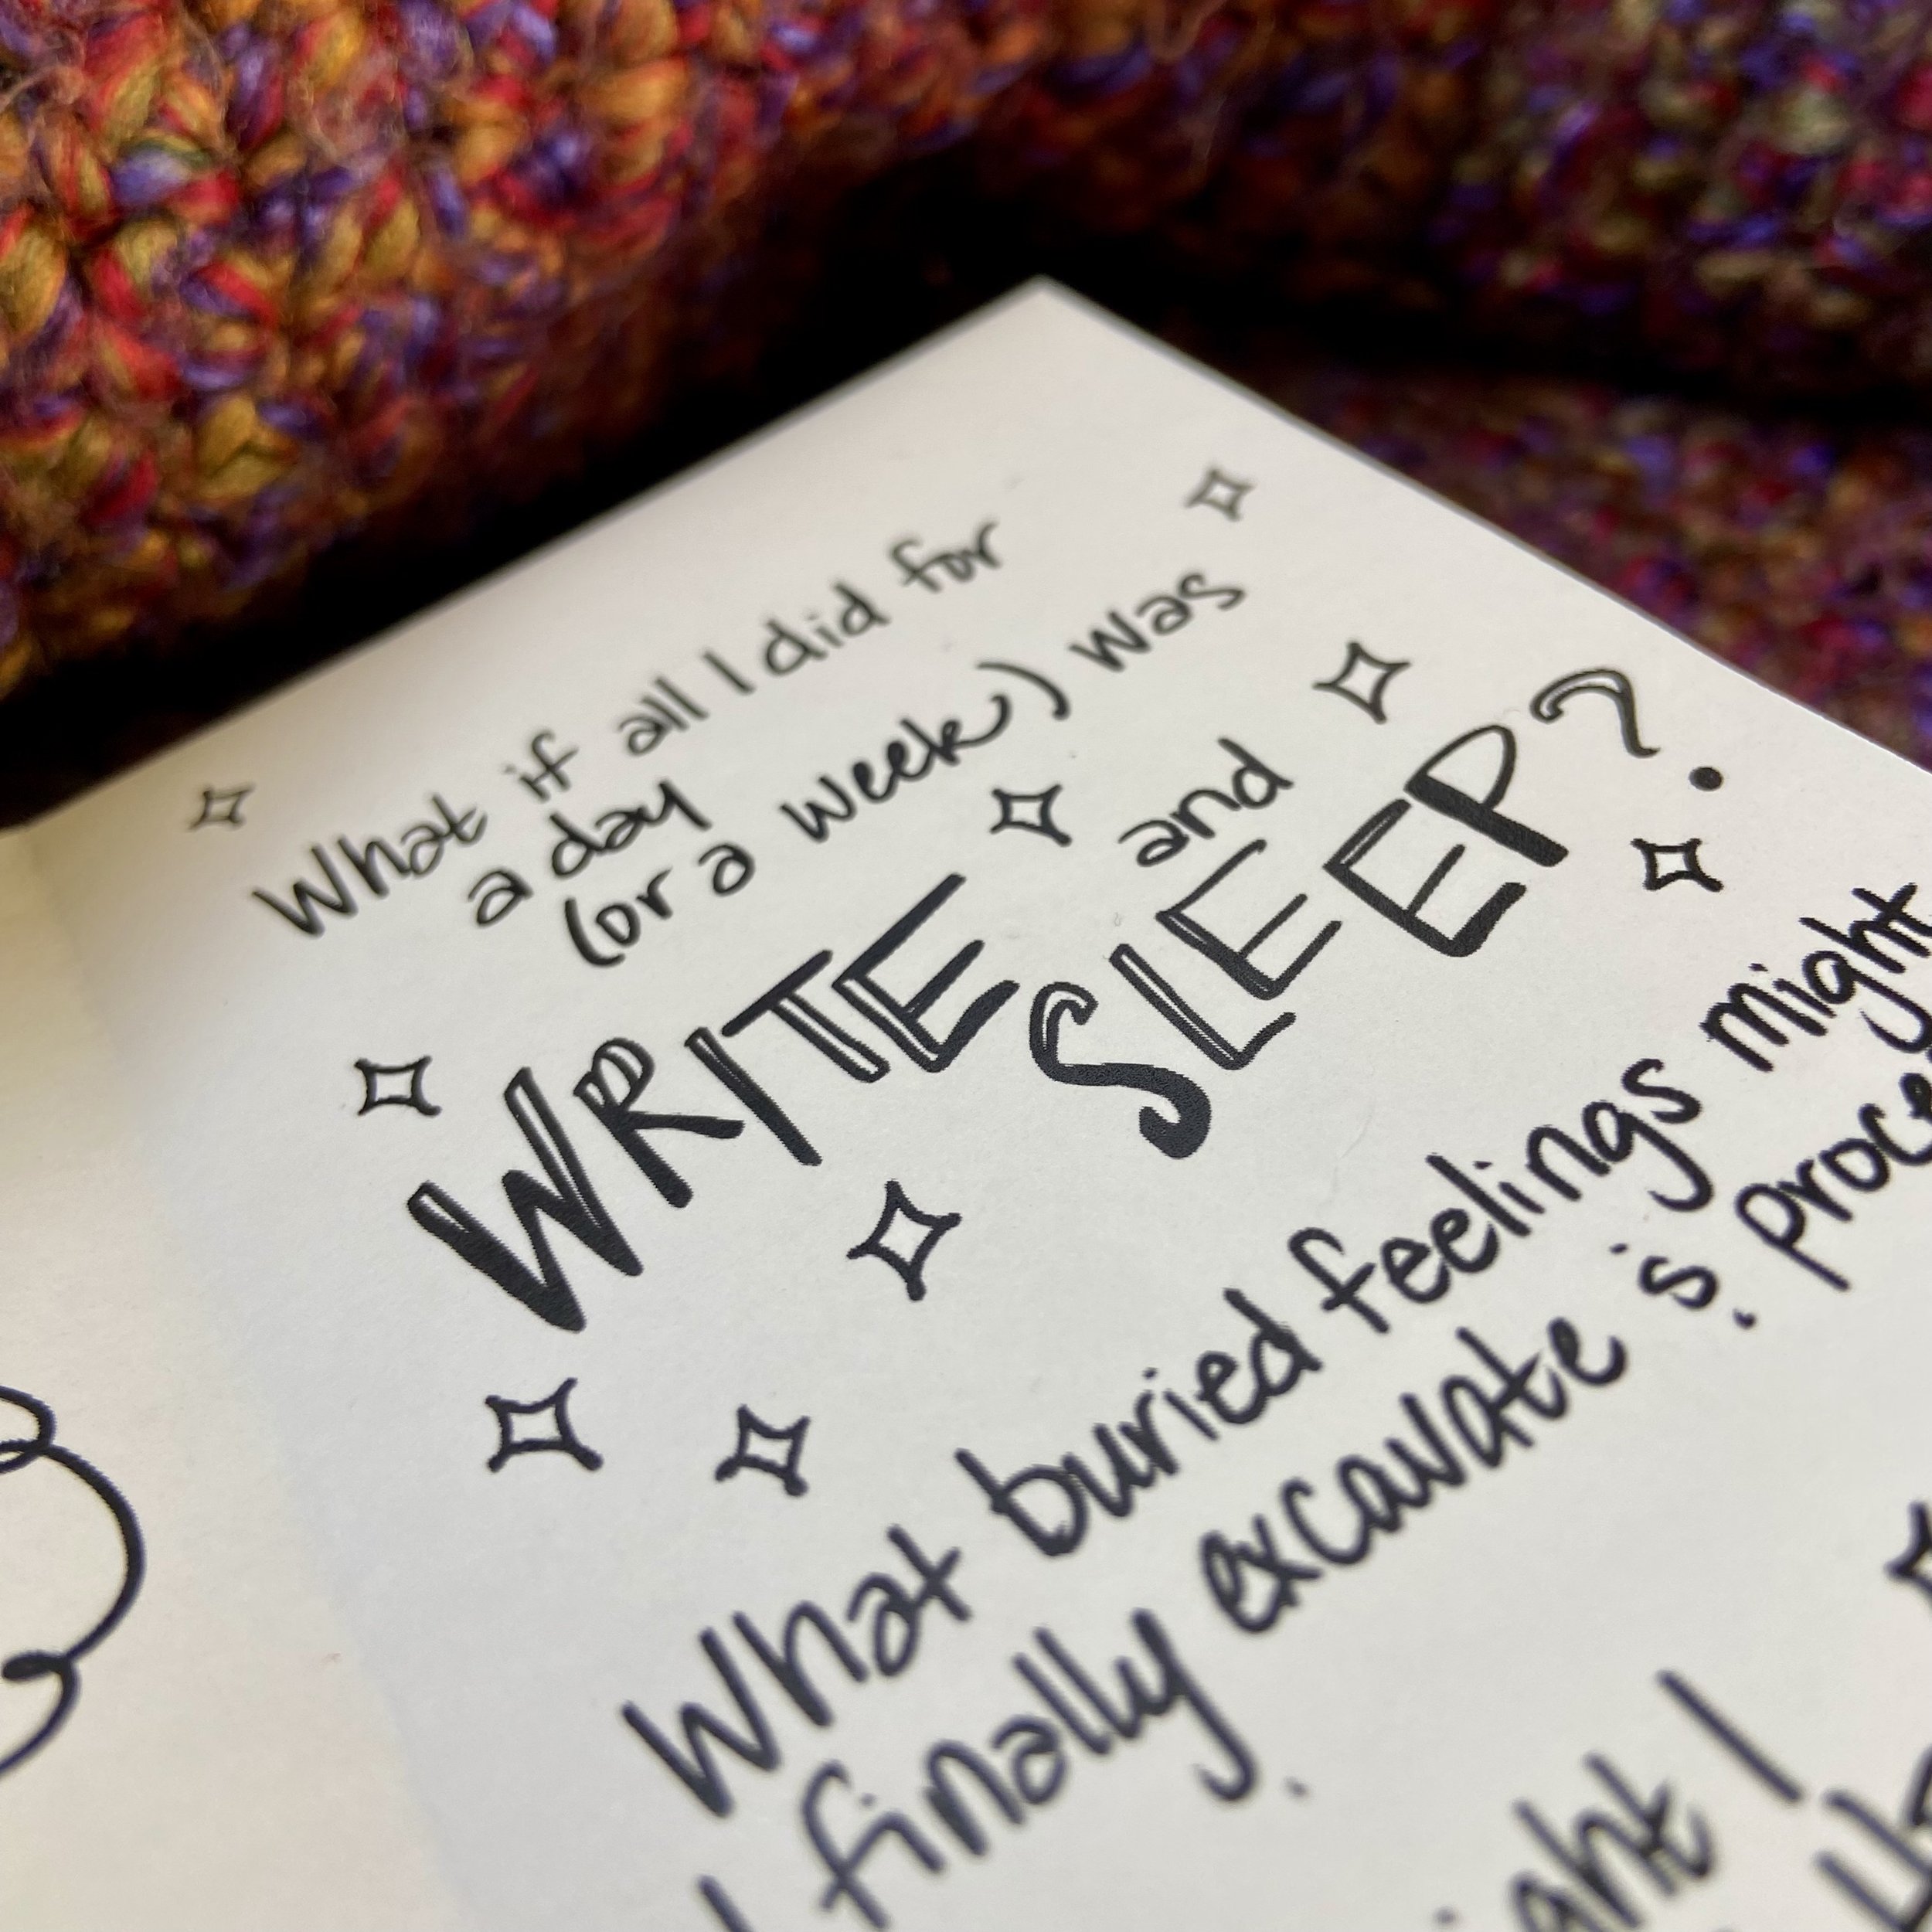 What if all I did for
a day
(or a week) was
WRITE and
SLEEP?
What buried feelings might
I finally excavate